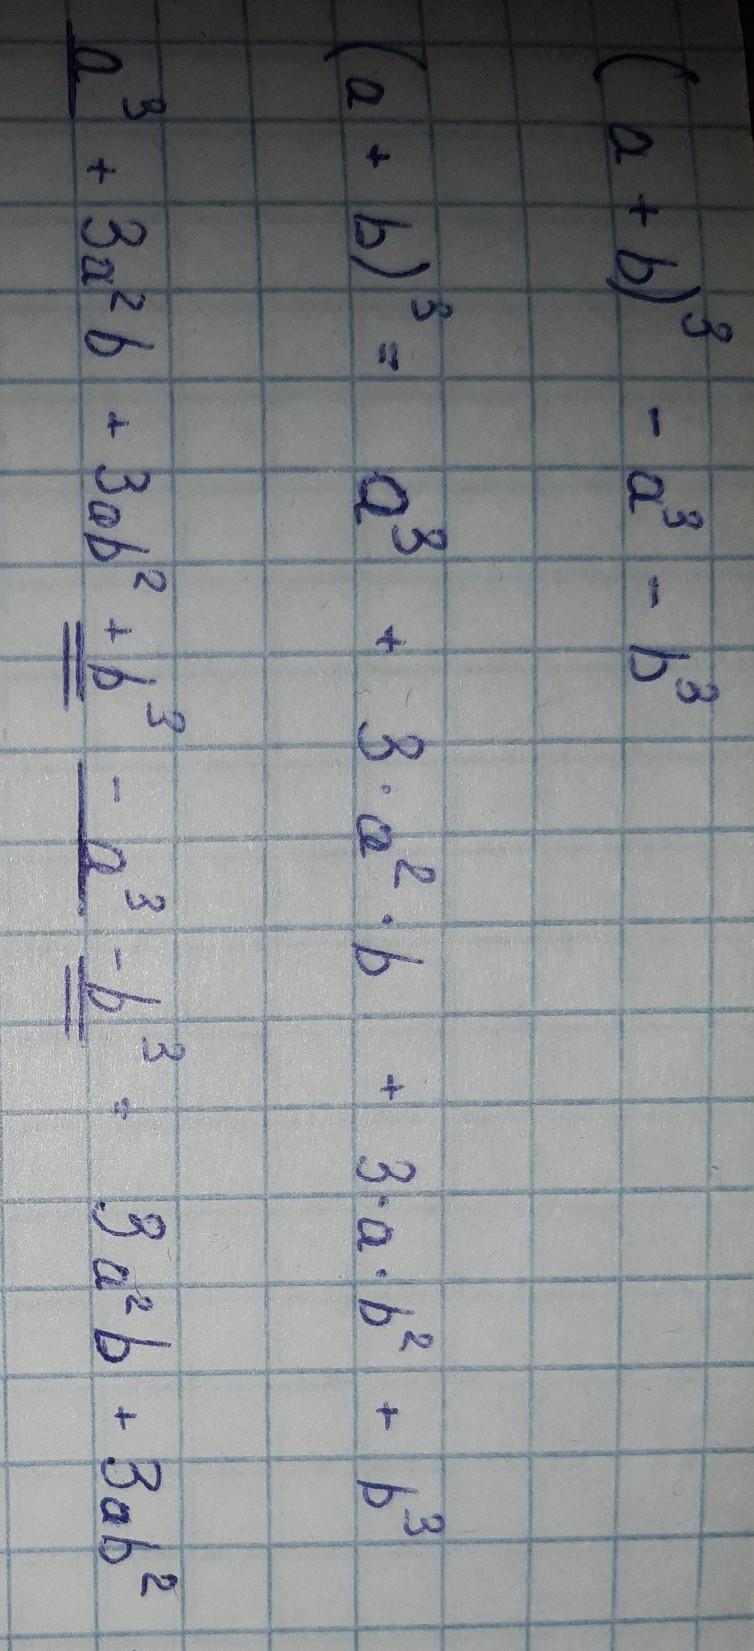 (a + b)³ - a³ - b³
(a + b)³ = a³ + 3·a²·b + 3·a·b² + b³
a³ + 3a²b + 3ab² + b³ - a³ - b³ = 3a²b + 3ab²